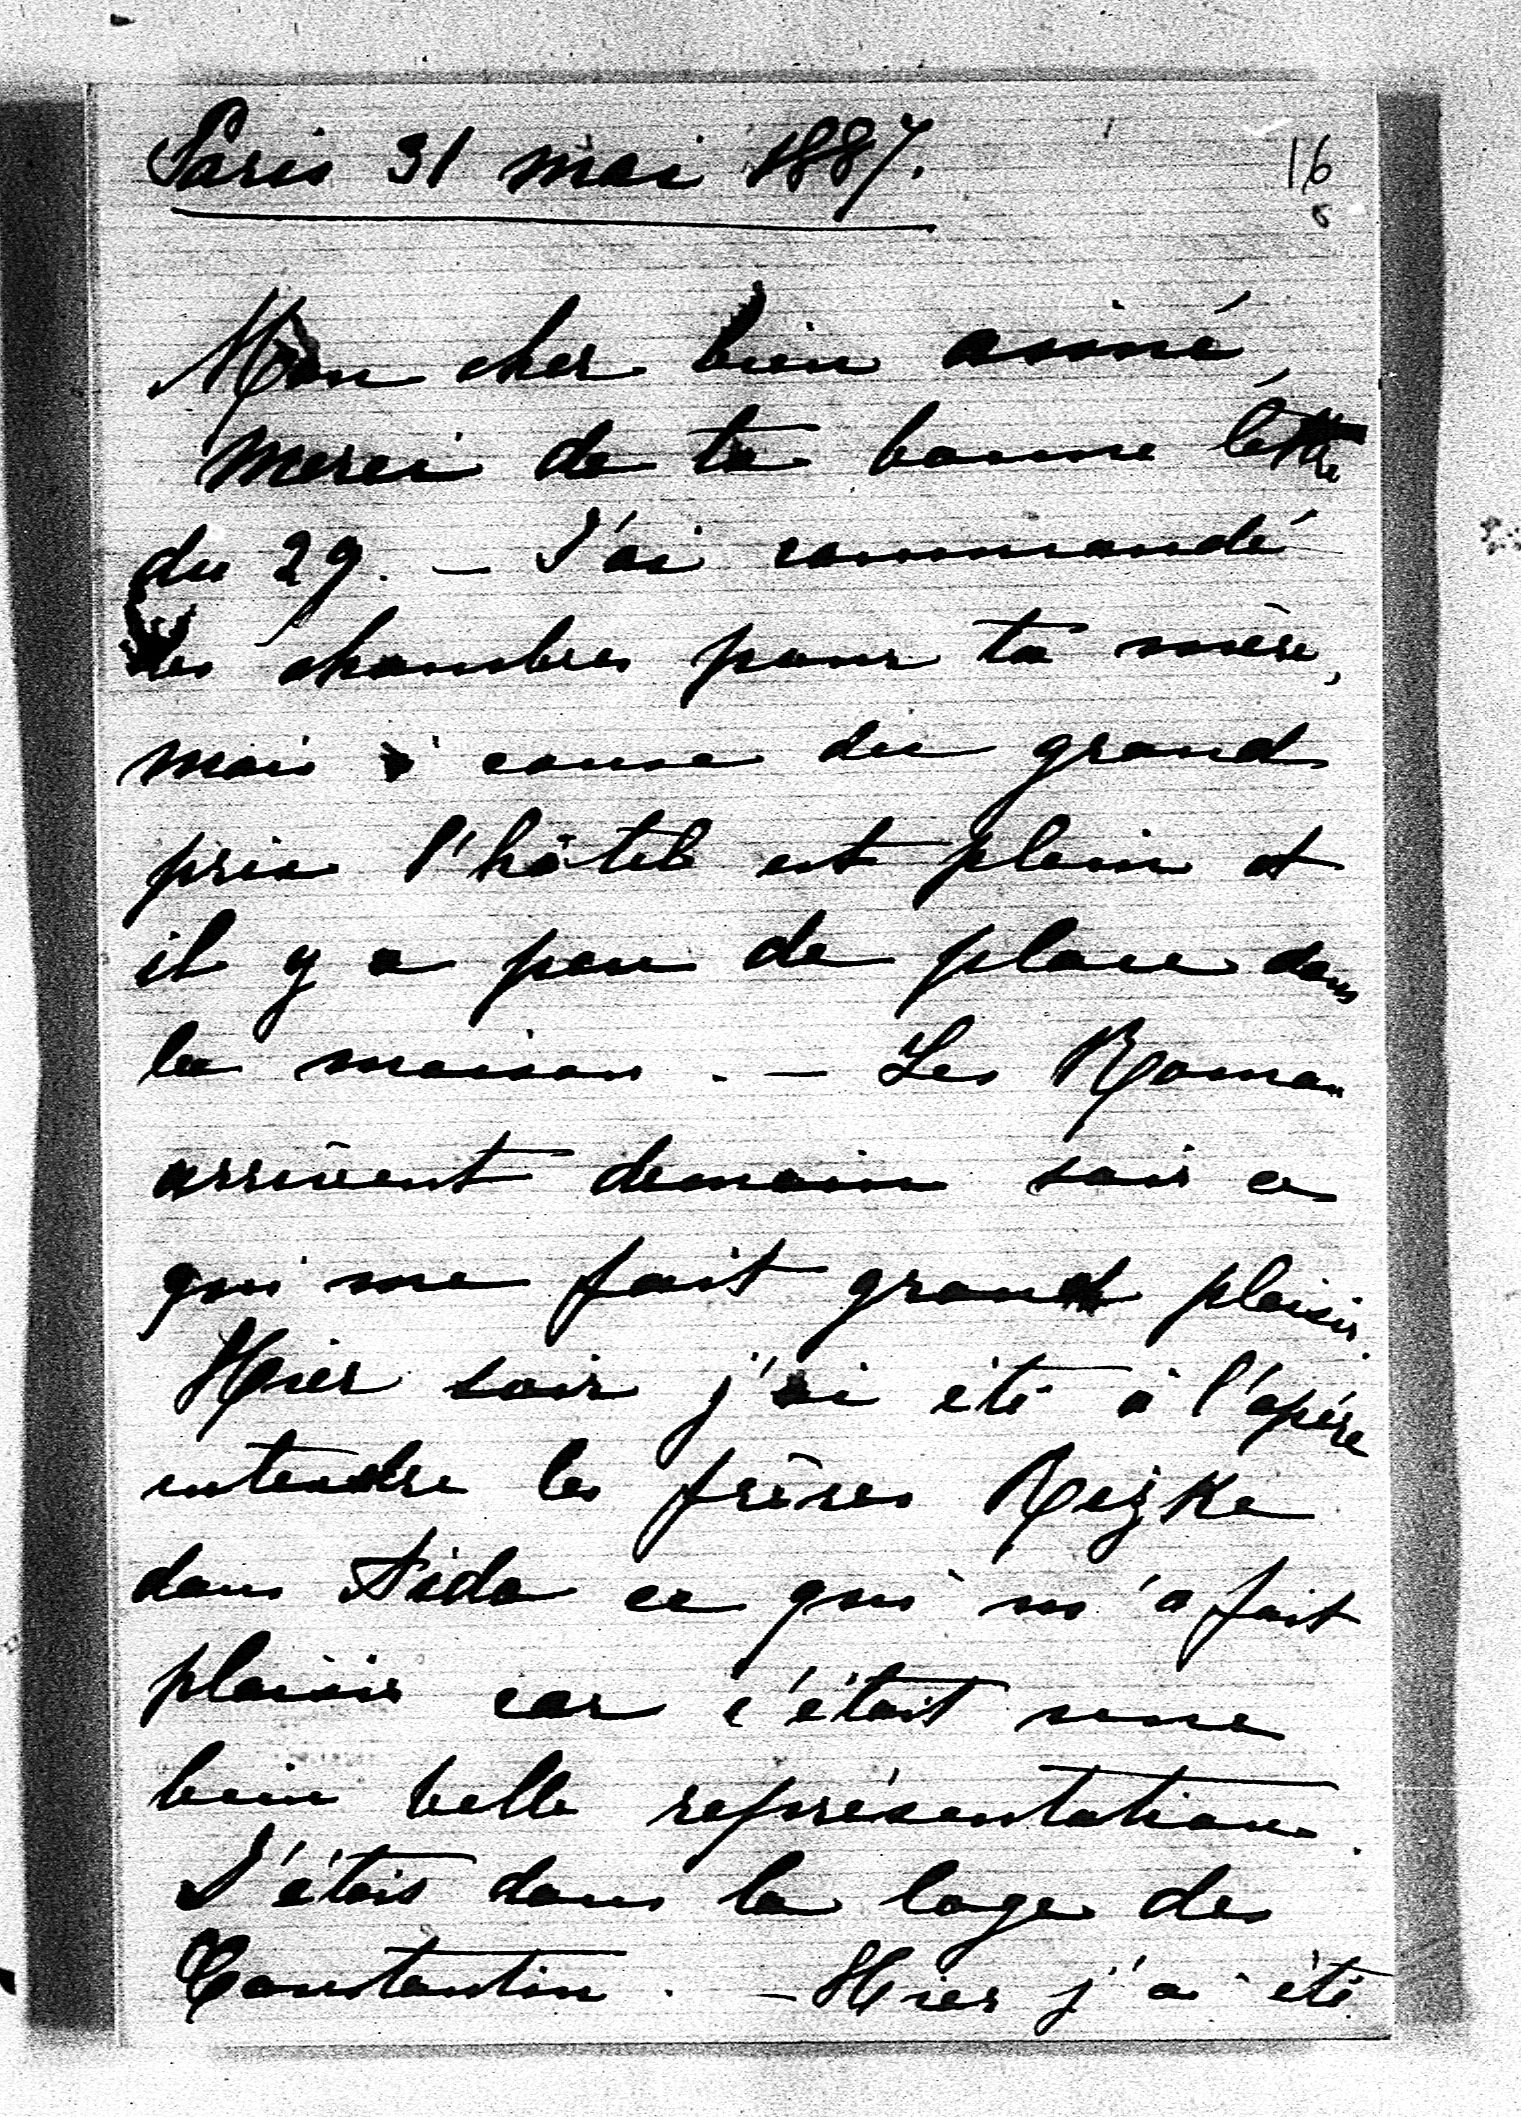 Paris 31 mai 1887.
16
8
Mon cher bien aimé,
Merci de ta bonne lettre
du 29. — J'ai commandé
des chambres pour ta mère,
mais à cause du grand
prix l'hôtel est plein et
il y a peu de place dans
la maison. — Les Roman
arrivent demain soir ce
qui me fait grand plaisir.
Hier soir j'ai été à l'opéra
entendre les frères Rezke
dans Aïda ce qui m'a fait
plaisir car c'était une
bien belle représentation.
J'étais dans la loge des
Constantin. — Hier j'ai été